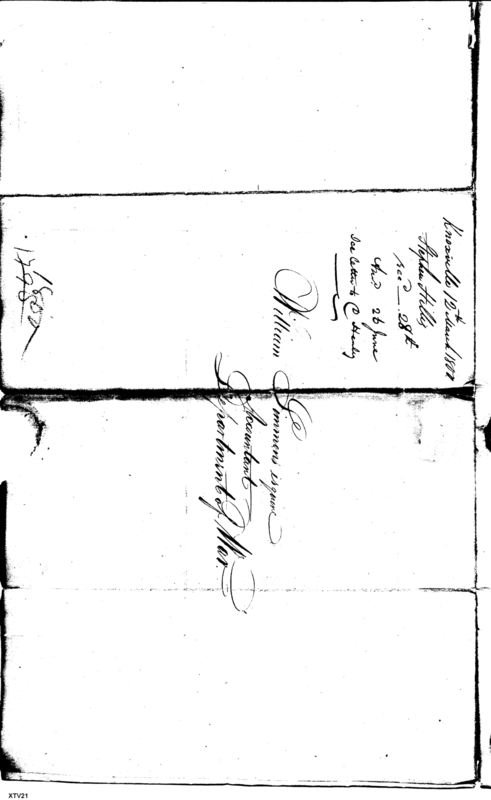 Knoxville 12th March 1800
Stephen Hillis
recd 28th
And 26 June
See letter to C Henley
William Simmons esquire
Accountant
Department of War
XTV21